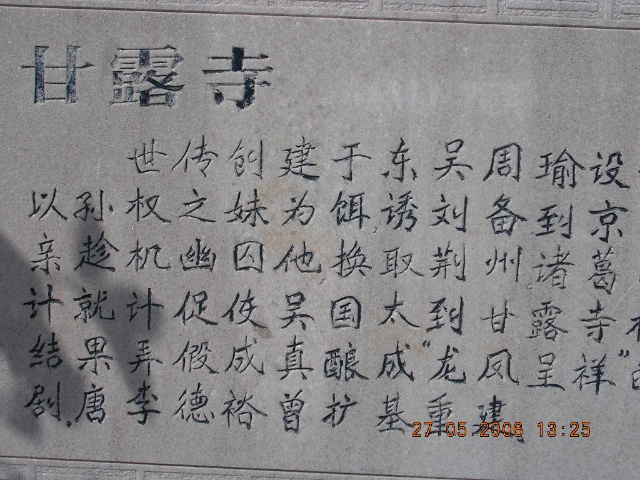 甘露寺
世传创建于东吴周瑜设
以孙权之妹为饵,诱刘备到京
亲趁机幽囚他换取荆州诸葛
计就计促使吴国太到甘露寺
结果弄假成真酿成“龙凤呈祥”
剧。唐李德裕曾扩基重建。
27-05-2008 13:25